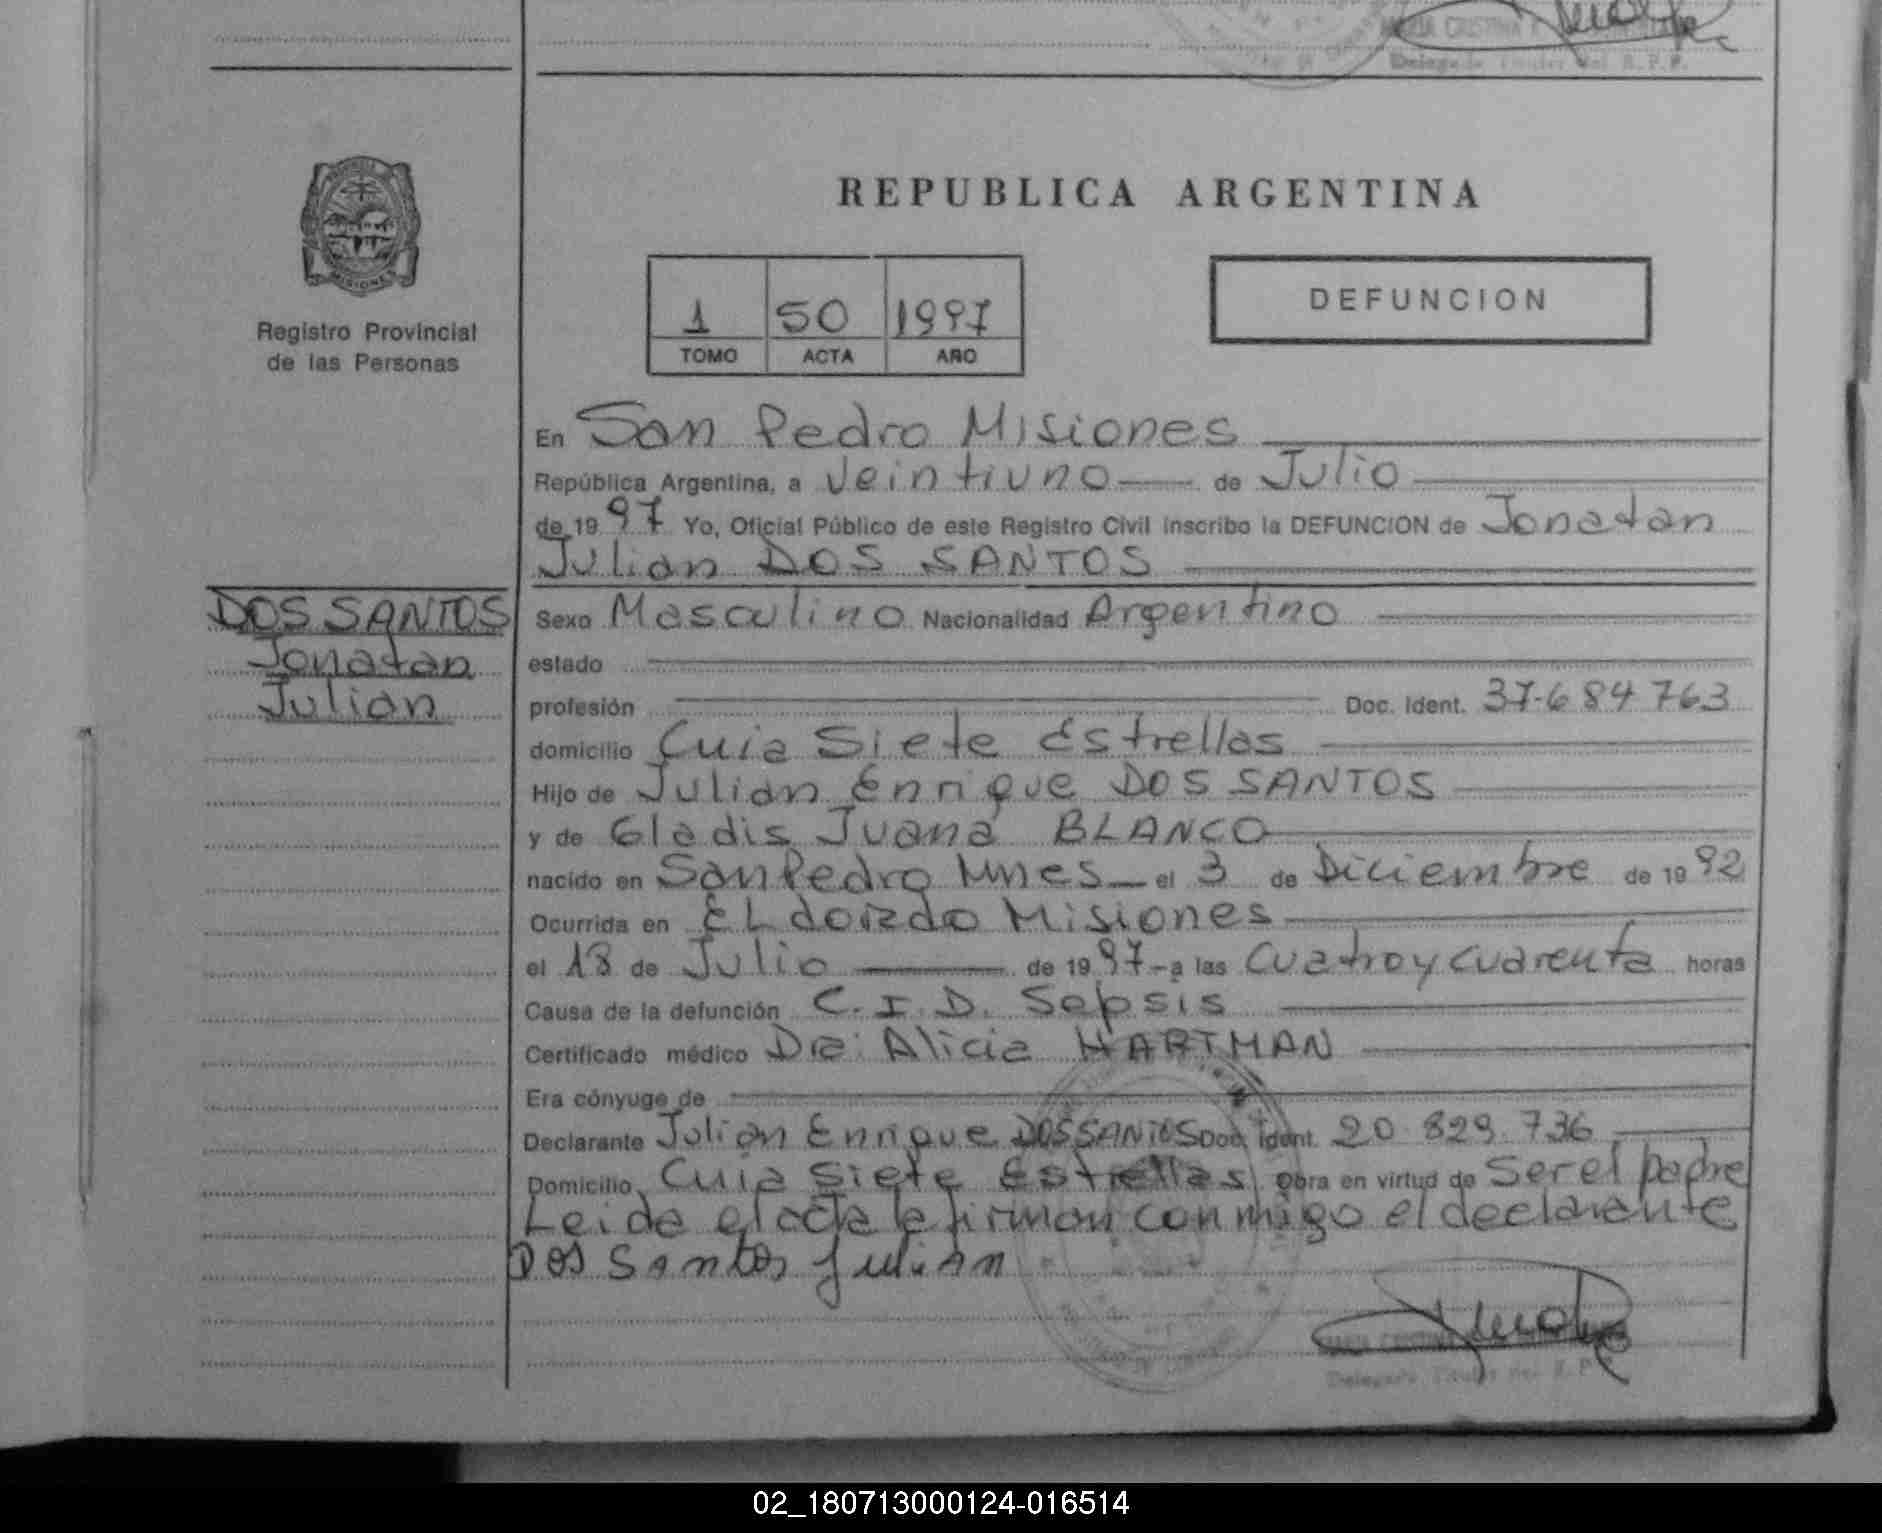 MARIA CRISTINA
Delegada Titular del R.P.P.
REPUBLICA ARGENTINA
MISIONES
Registro Provincial
de las Personas
1 50 1997
TOMO ACTA AÑO
DEFUNCION
En San Pedro Misiones
República Argentina, a veintiuno de Julio
de 1997 Yo, Oficial Público de este Registro Civil inscribo la DEFUNCION de Jonatan
Julian DOS SANTOS
DOS SANTOS
Jonatan
Julian
Sexo Masculino Nacionalidad Argentino
estado
profesión Doc. Ident. 37.684763
domicilio Cuia Siete Estrellas
Hijo de Julian Enrique DOS SANTOS
y de Gladis Juana BLANCO
nacido en San Pedro Mnes el 3 de Diciembre de 1992
Ocurrida en ELdorado Misiones
el 18 de Julio de 1997-a las Cuatro y cuarenta horas
Causa de la defunción C.I.D. Sepsis
Certificado médico Dra: Alicia HARTMAN
Era cónyuge de
Declarante Julian Enrique DOS SANTOS Doc. Ident. 20.829.736
Domicilio Cuia Siete Estrellas Obra en virtud de Ser el padre
Leida el acta la firman conmigo el declarante
DOS Santos Julian
MARIA CRISTINA
Delegada Titular del R.P.P.
02_180713000124-016514